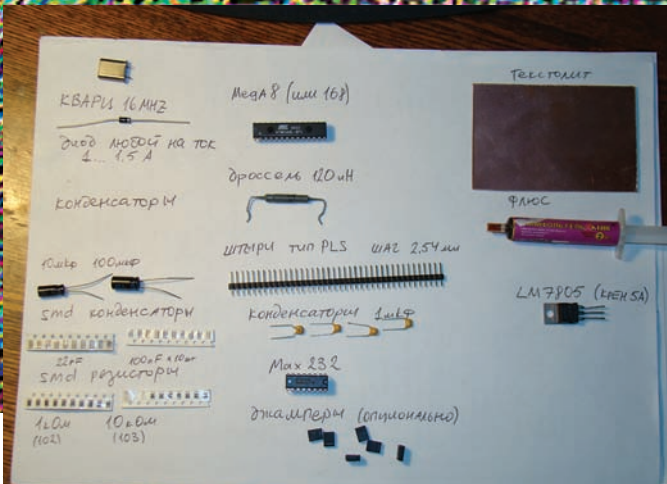 КВАРЦ 16MHZ
диод любой на ток
1... 1,5 А
конденсаторы
10мкф 100мкф
smd конденсаторы
22пF 100nF x 10шт
smd резисторы
1кОм 10кОм
(102) (103)
MegA8 (или 168)
дроссель 120мН
ШТЫРИ ТИП PLS ШАГ 2,54мм
конденсаторы 1мкф
Max 232
джамперы (опционально)
Текстолит
ФЛЮС
LM7805 (КРЕН 5А)